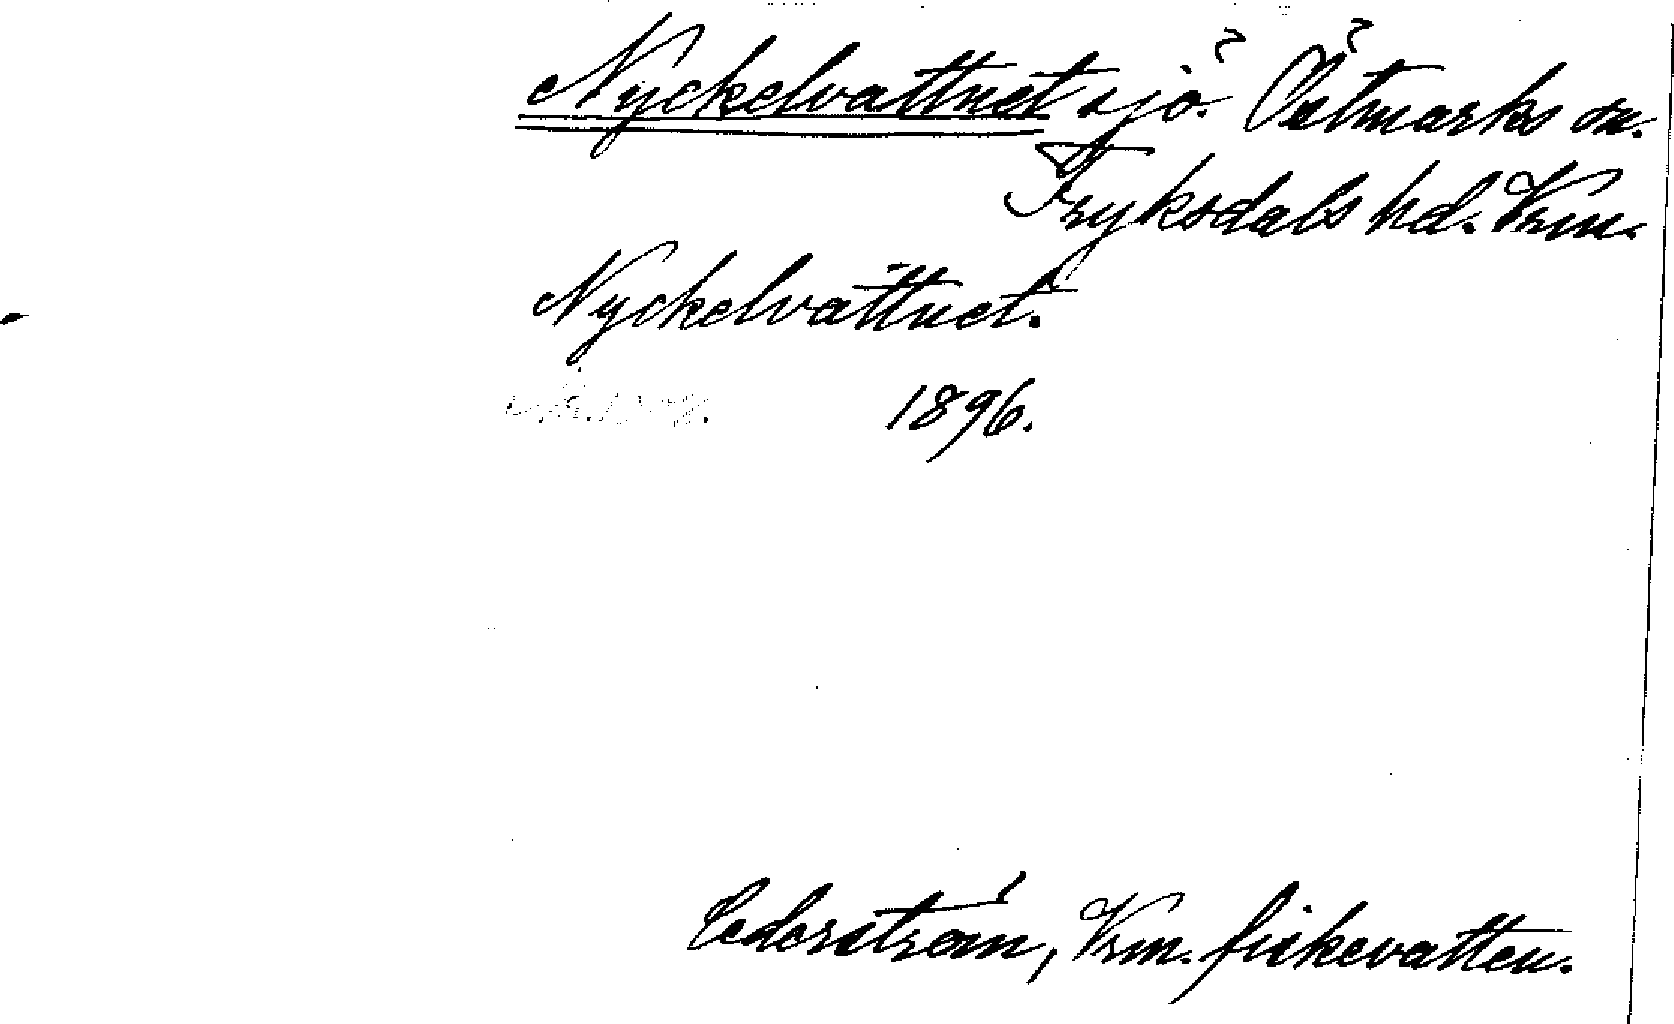 Nyckelvattnet sjö. Östmarks sn.
Fryksdals hd. Vrm.
Nyckelvattnet.
1896.
Cederström, Vrm. fiskevatten.